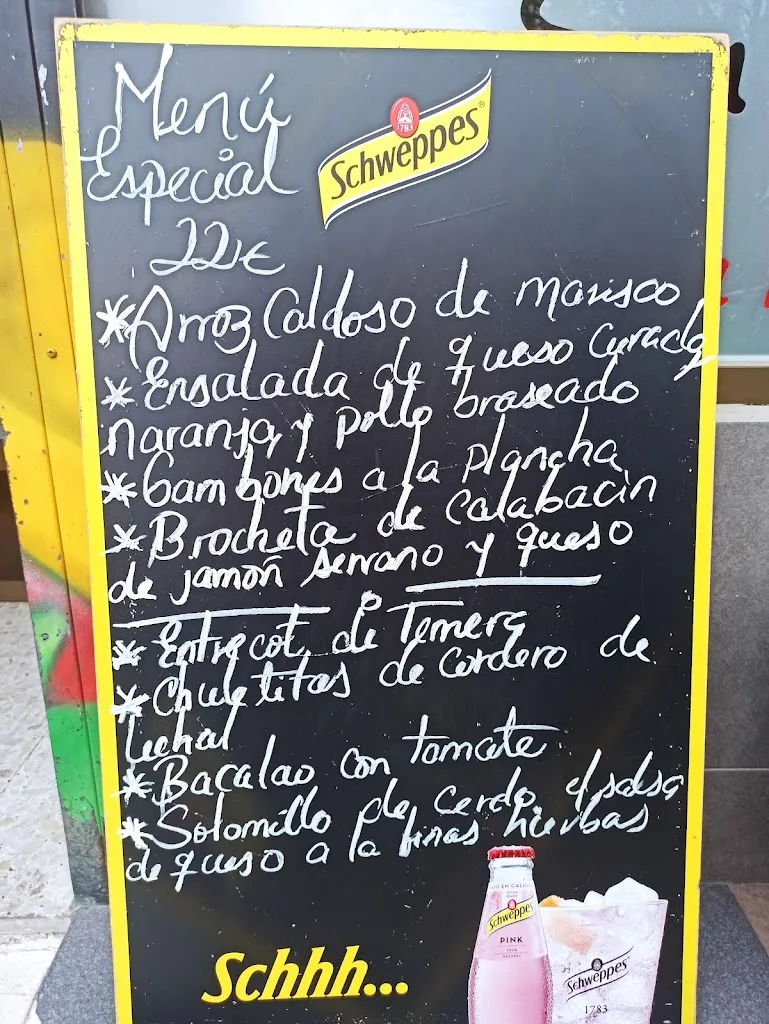 Menú
Especial
22€
Schweppes
1783
* Arroz Caldoso de marisco
* Ensalada de queso Curado
naranja, y pollo braseado
* Gambones a la plancha
* Brocheta de Calabacin
de jamon serrano y queso
* Entrecot de Ternera
* Chuletitas de Cordero de
lechal
* Bacalao con tomate
* Solomillo de Cerdo, salsa
de queso a la finas hierbas
Schhh...
Schweppes
PINK
Schweppes
1783